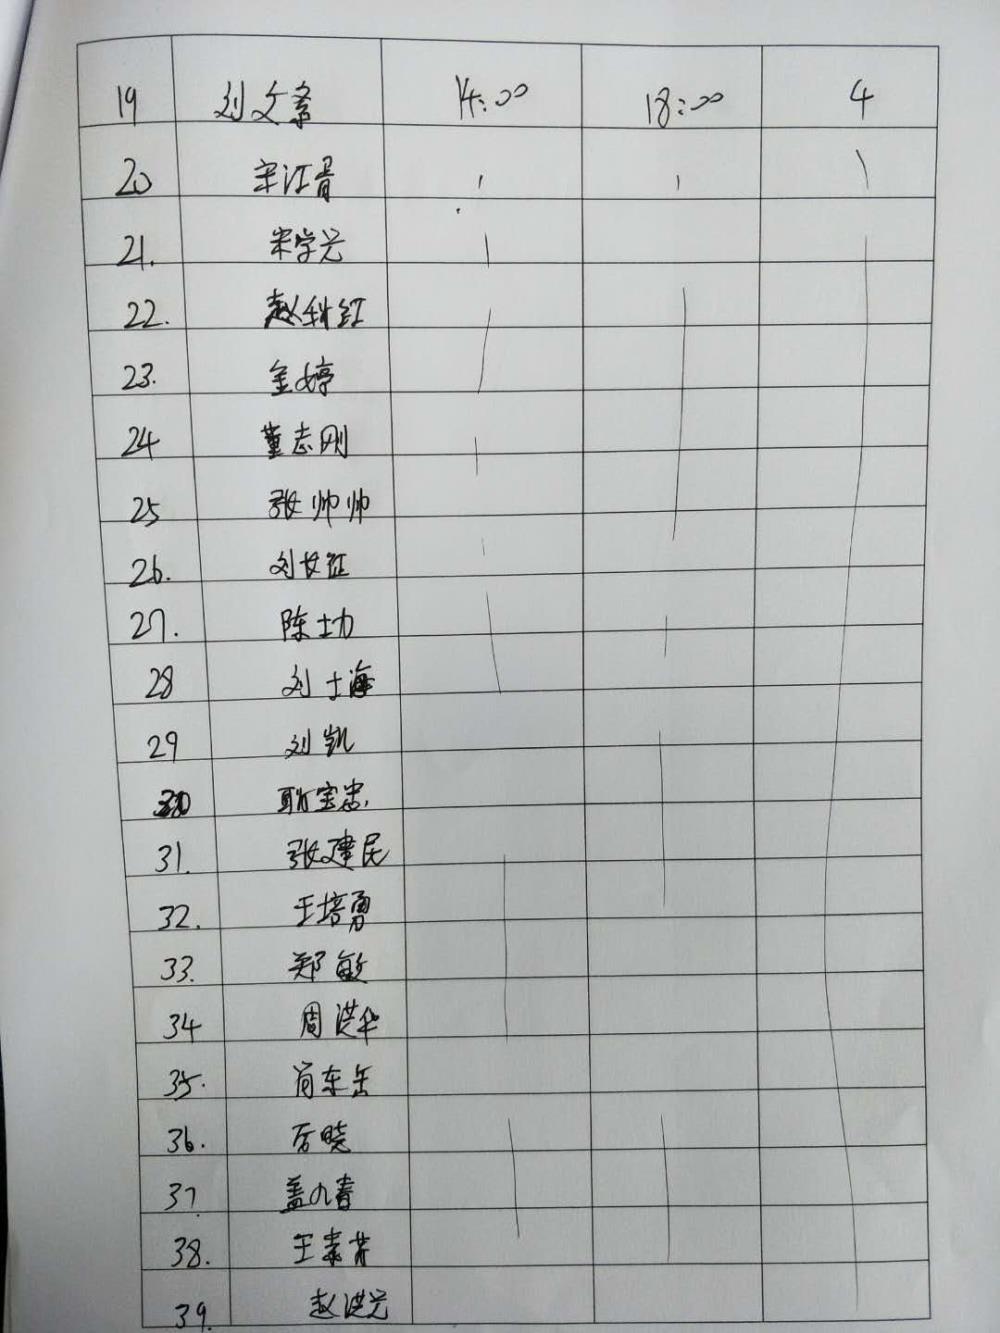 19 刘文 14:00 18:00 4
20 宋江
21. 宋学兰
22. 赵红
23. 金婷
24 董志刚
25 张帅帅
26. 刘长征
27. 陈士功
28 刘士海
29 刘凯
30 耿宝忠
31. 张建民
32. 王培勇
33. 郑敏
34 周洪华
35. 肖东
36. 晓
37. 盖九春
38. 王素芳
39. 赵洪兰